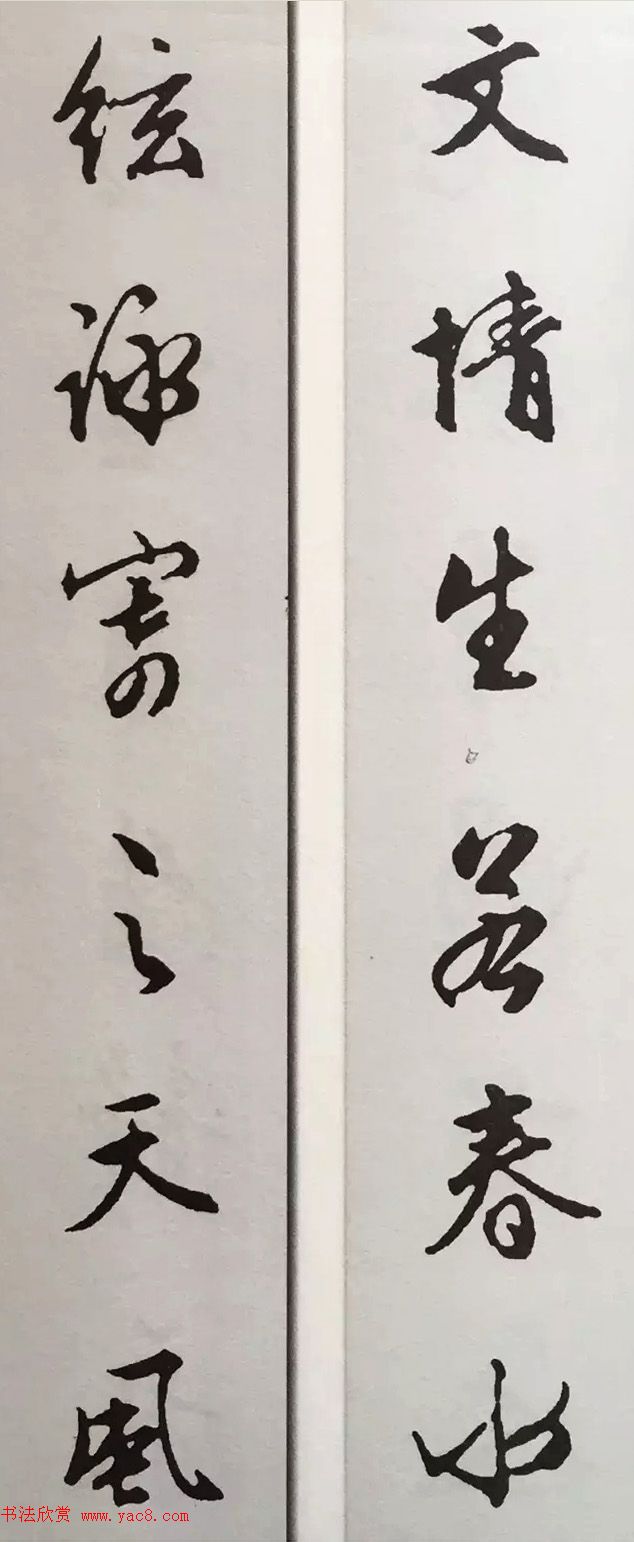 文情生若春水
絃詠寄之天風
书法欣赏 www.yac8.com